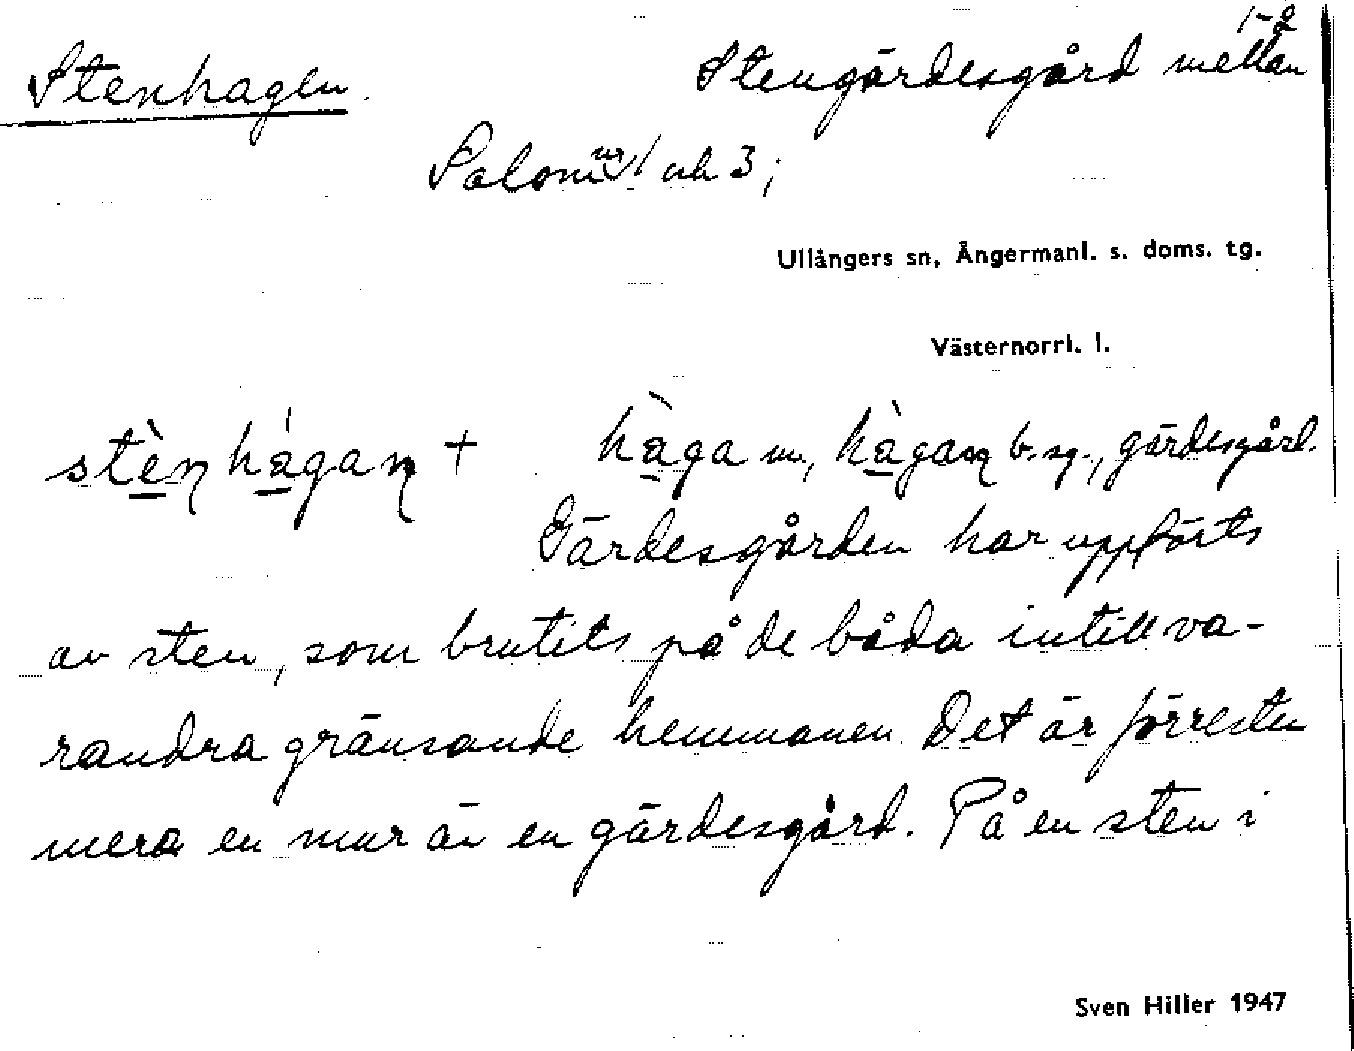 1-2
Stenhagen. Stengärdesgård mellan
Salom nr 1 och 3;
Ullångers sn, Ångermanl. s. doms. tg.
Västernorrl. l.
stèn hágan + hàga m., hàgan b. sg., gärdesgård.
Gärdesgården har uppförts
av sten, som brutits på de båda intill va-
randra gränsande hemmanen. Det är förresten
mera en mur än en gärdesgård. På en sten i
Sven Hiller 1947